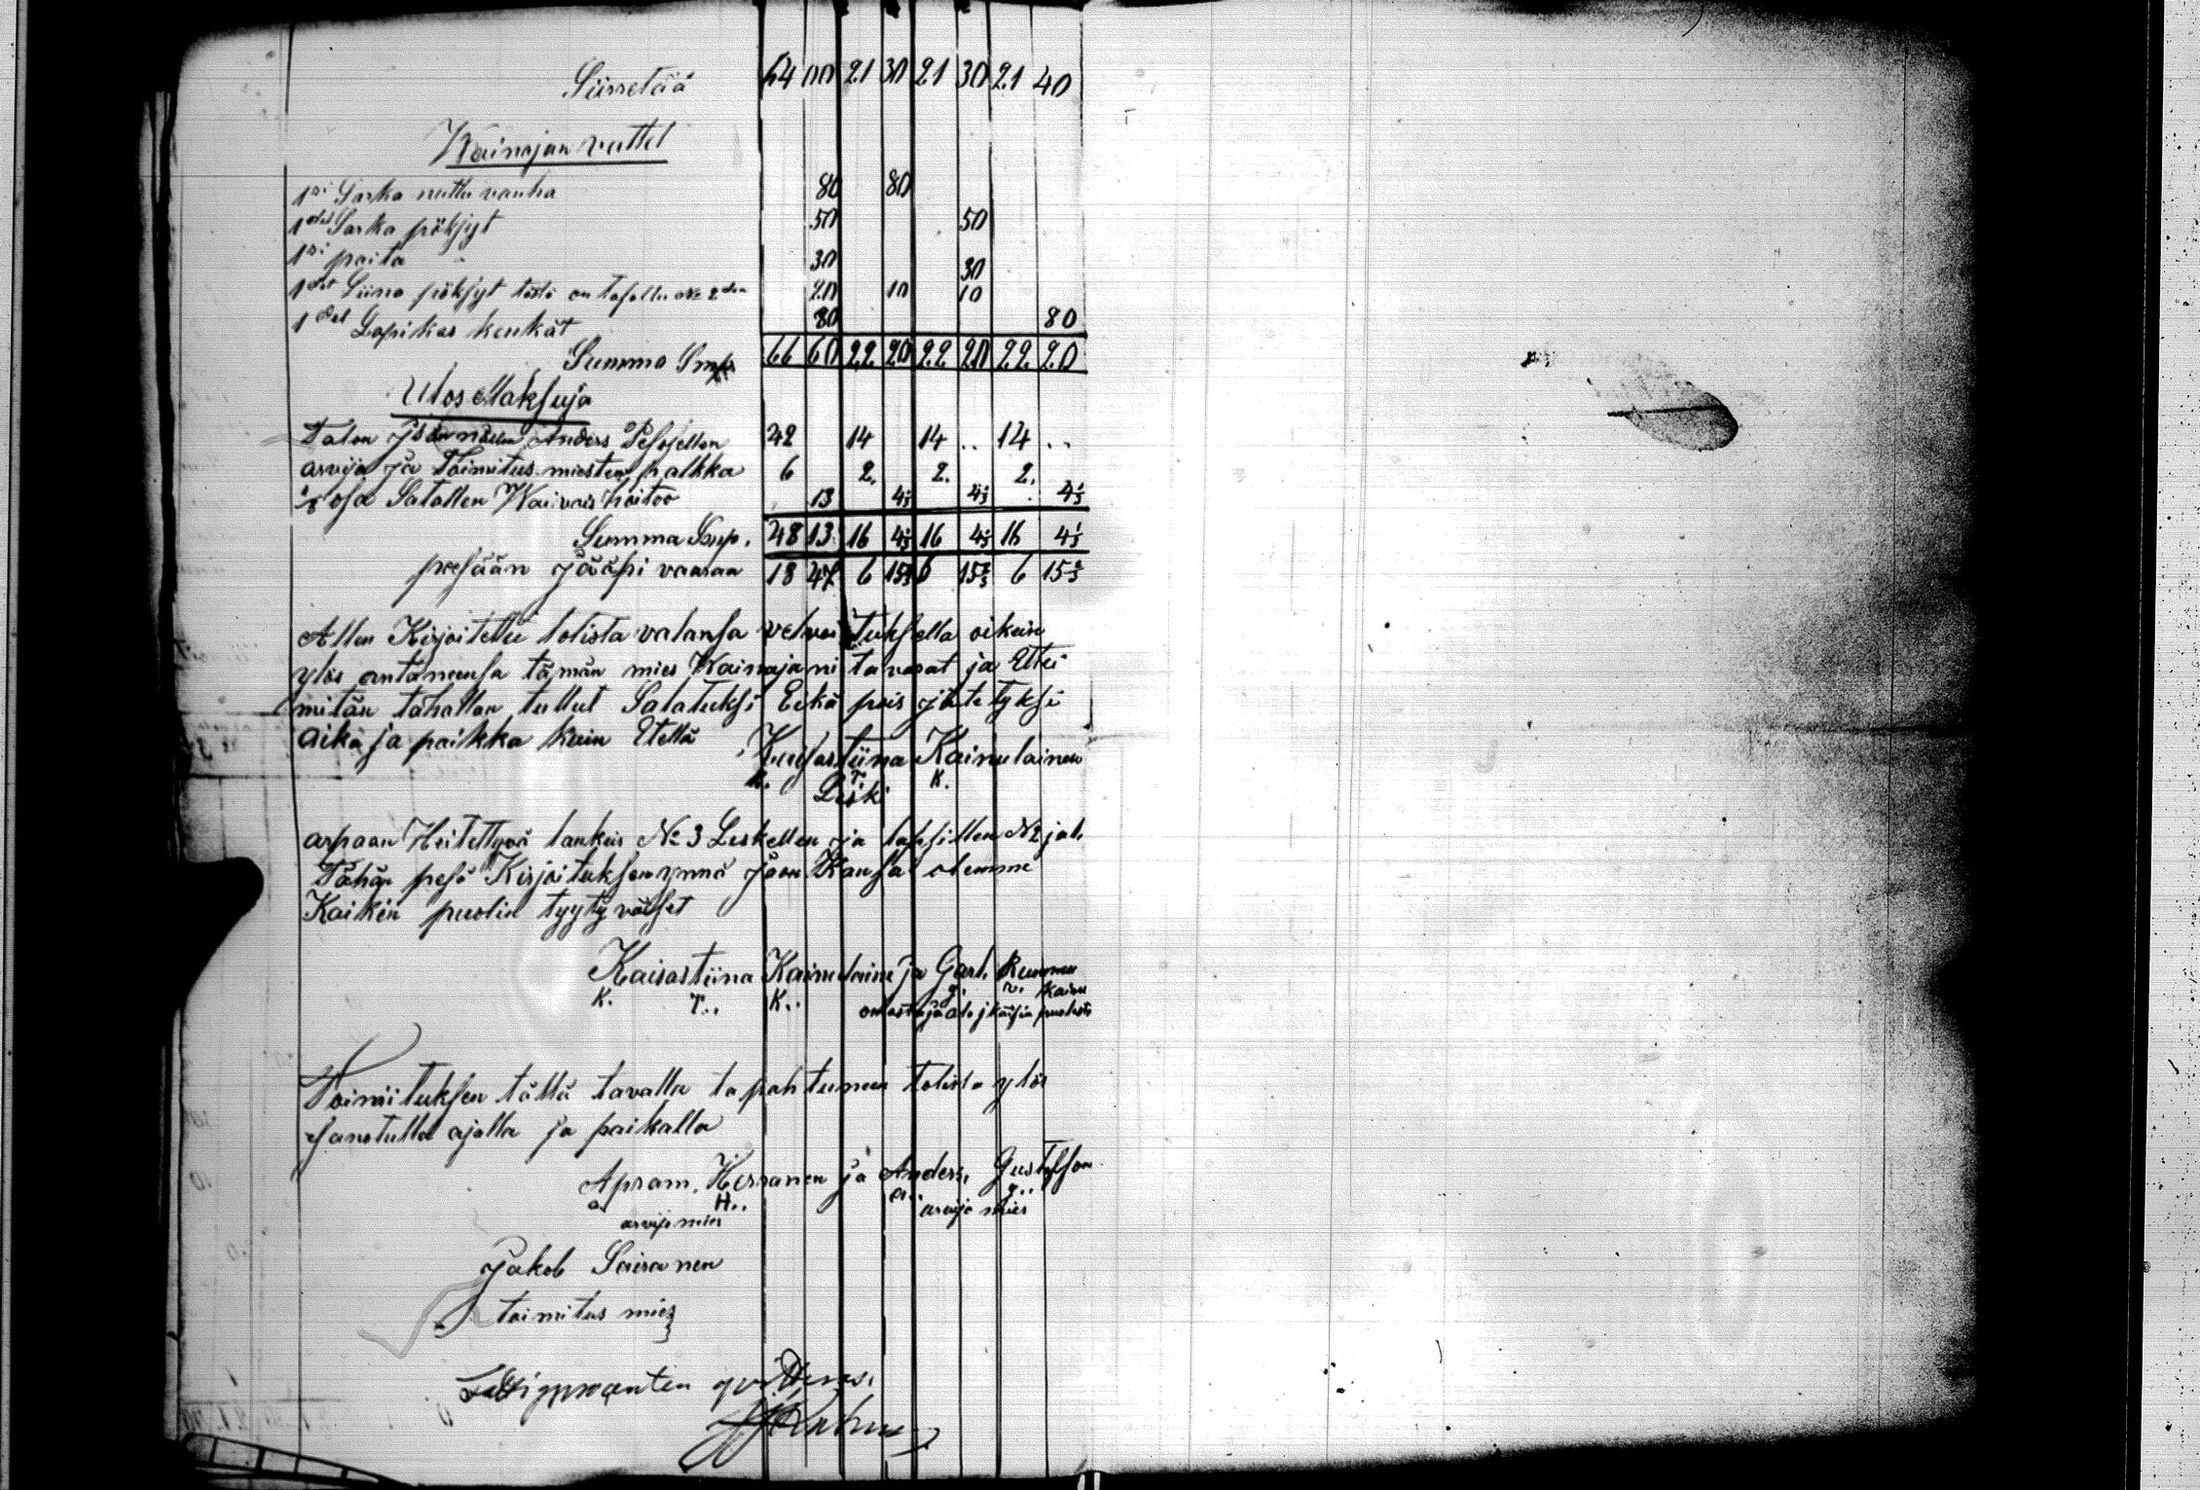 Siirretää 64 00 21 30 21 30 21 40
Wainajan vattet
1si Sarka nuttu vanha 80 80
1det Sarka pöksyt 50 50
1si paita 30 30
1det Liina pöksyt tästä on tasattu No 2den 20 10 10
1det Lapikas kenkät 80 80
Summa Smp 66 60 22 20 22 20 22 20
Ulos Maksuja
Talon Isännällen Anders Pesosellen 42 14 14 .. 14 ..
arvija ja Toimitus miesten palkka 6 2. 2. 2.
1/8 osa Satallen Waivais hoitoo 13 4 1/3 4 1/3 4 1/3
Summa Smp. 48 13 16 4 1/3 16 4 1/3 16 4 1/3
pesään jääpi varaa 18 47 6 15 2/3 6 15 2/3 6 15 2/3
Allen Kirjoitettu totista valansa velvoituksella oikein
ylös antaneensa tämän mies Wainajani tavarat ja Ettei
mitän tahallan tullut Salatuksi Eikä pois jätetyksi
aika ja paikka kuin Etellä
Kaisastiina Kainulainen
K. T. K.
Leski
arpaan Heitettyvä lankeis No 3 Leskellen ja lapsillen No 2 ja 1.
Tähän pesä Kirjoituksen ynnä jaon Kansa olemme
Kaikin puolin tyytyväiset
Kaisastiina Kainulainen ja Garl.
K. T.. K..
Toimituksen tällä tavalla tapahtuneen totista ylös
sanotulla ajalla ja paikalla
Apram. Herranen ja Anders. Gustafson
a. H.. a.. g..
arvijo mies arvijo mies
Jakob Saisanen
toimitus mies